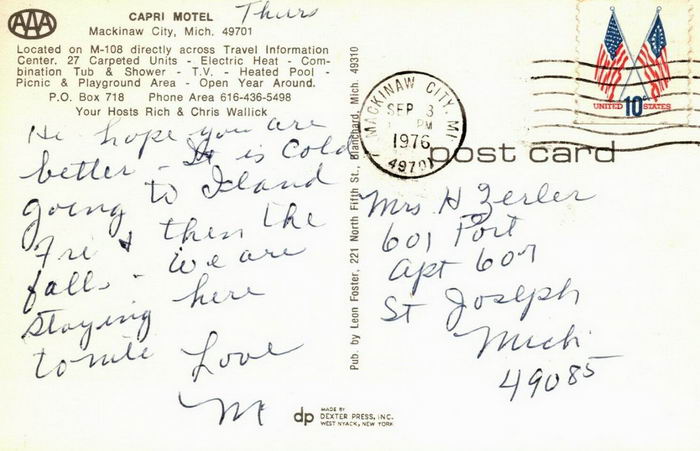 AAA
CAPRI MOTEL
Thurs
Mackinaw City, Mich. 49701
Located on M-108 directly across Travel Information
Center. 27 Carpeted Units - Electric Heat - Com-
bination Tub & Shower - T.V. - Heated Pool -
Picnic & Playground Area - Open Year Around.
P.O. Box 718 Phone Area 616-436-5498
Your Hosts Rich & Chris Wallick
hope you are
better - It is Cold
going to Island
Fri & then the
falls - we are
staying here
tonite Love
M
Pub. by Leon Foster, 221 North Fifth St., Blanchard, Mich. 49310
MACKINAW CITY, MI
SEP 3
PM
1976
49701
UNITED 10c STATES
post card
Mrs H Zerler
601 Port
Apt 607
St Joseph
Mich
49085
dp MADE BY
DEXTER PRESS, INC.
WEST NYACK, NEW YORK